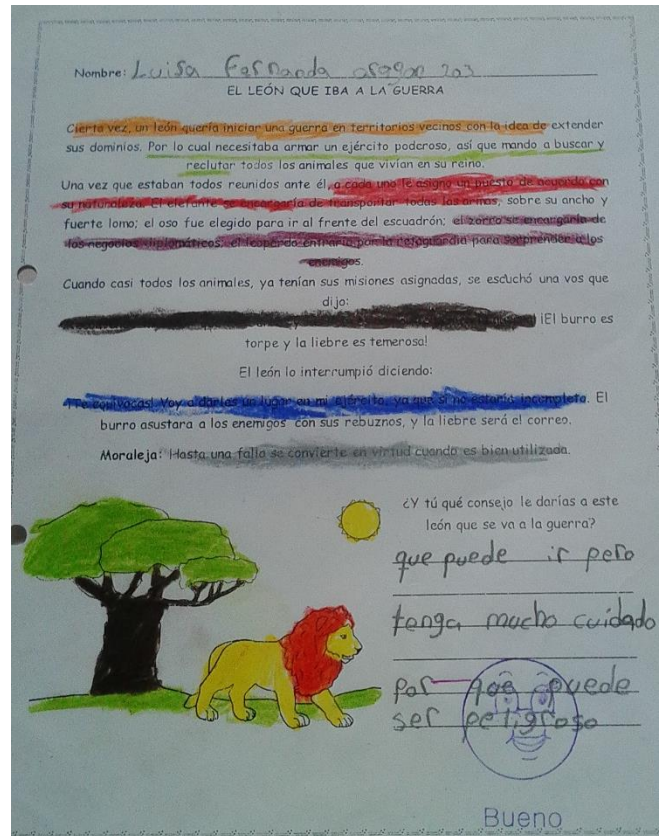 Nombre: Luisa Fernanda aragon 203
EL LEÓN QUE IBA A LA GUERRA
Cierta vez, un león quería iniciar una guerra en territorios vecinos con la idea de extender
sus dominios. Por lo cual necesitaba armar un ejército poderoso, así que mando a buscar y
reclutar todos los animales que vivían en su reino.
Una vez que estaban todos reunidos ante él, a cada uno le asigno un puesto de acuerdo con
su naturaleza. El elefante se encargaría de transportar todas las armas, sobre su ancho y
fuerte lomo; el oso fue elegido para ir al frente del escuadrón; el zorro se encargaría de
los negocios diplomáticos; el leopardo entraría por la retaguardia para sorprender a los
enemigos.
Cuando casi todos los animales, ya tenían sus misiones asignadas, se escuchó una vos que
dijo:
¡El burro es
torpe y la liebre es temerosa!
El león lo interrumpió diciendo:
¡Te equivocas! Voy a darles un lugar en mi ejército, ya que si no estaría incompleto. El
burro asustara a los enemigos con sus rebuznos, y la liebre será el correo.
Moraleja: Hasta una falla se convierte en virtud cuando es bien utilizada.
¿Y tú qué consejo le darías a este
león que se va a la guerra?
que puede ir pero
tenga mucho cuidado
por que puede
ser peligroso
Bueno